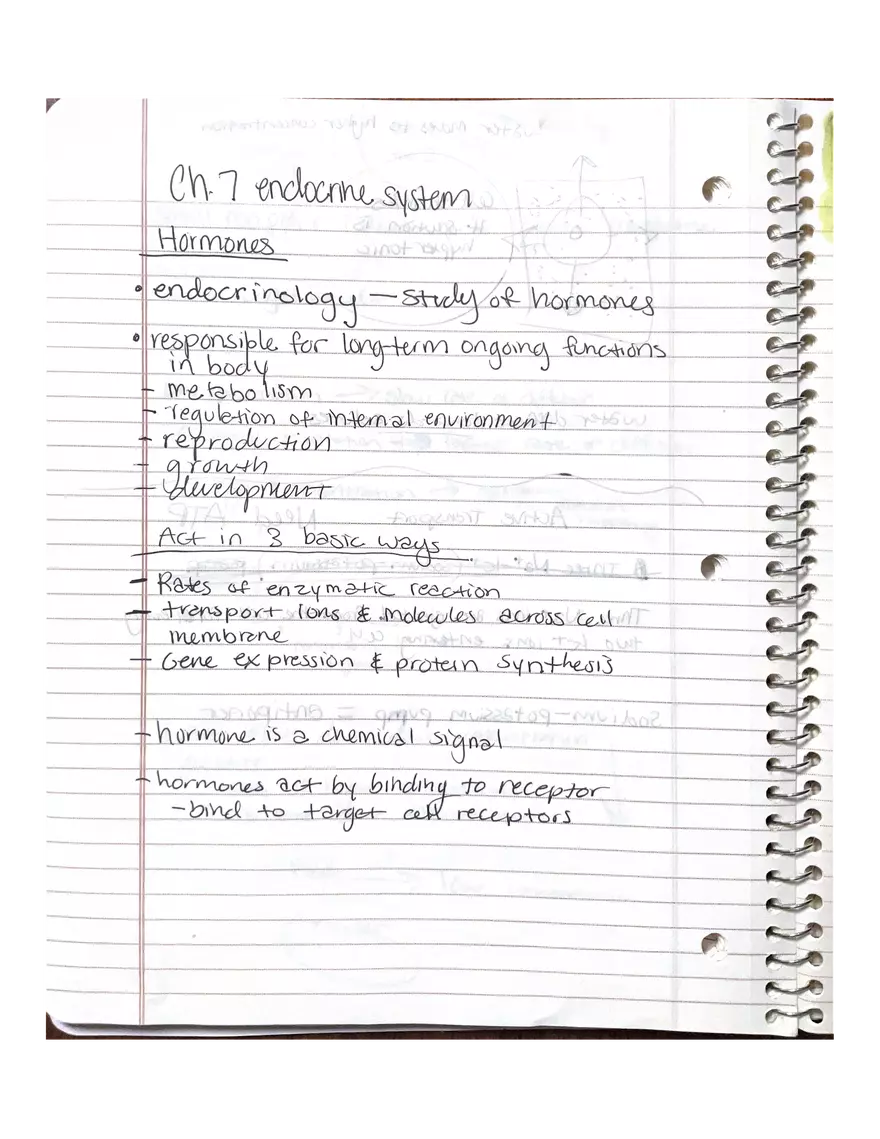 Ch. 7 endocrine system
Hormones
• endocrinology – study of hormones
• responsible for long-term ongoing functions
in body
- metabolism
- regulation of internal environment
- reproduction
- growth
- development
Act in 3 basic ways
- Rates of enzymatic reaction
- transport ions & molecules across cell
membrane
- Gene expression & protein synthesis
- hormone is a chemical signal
- hormones act by binding to receptor
- bind to target cell receptors